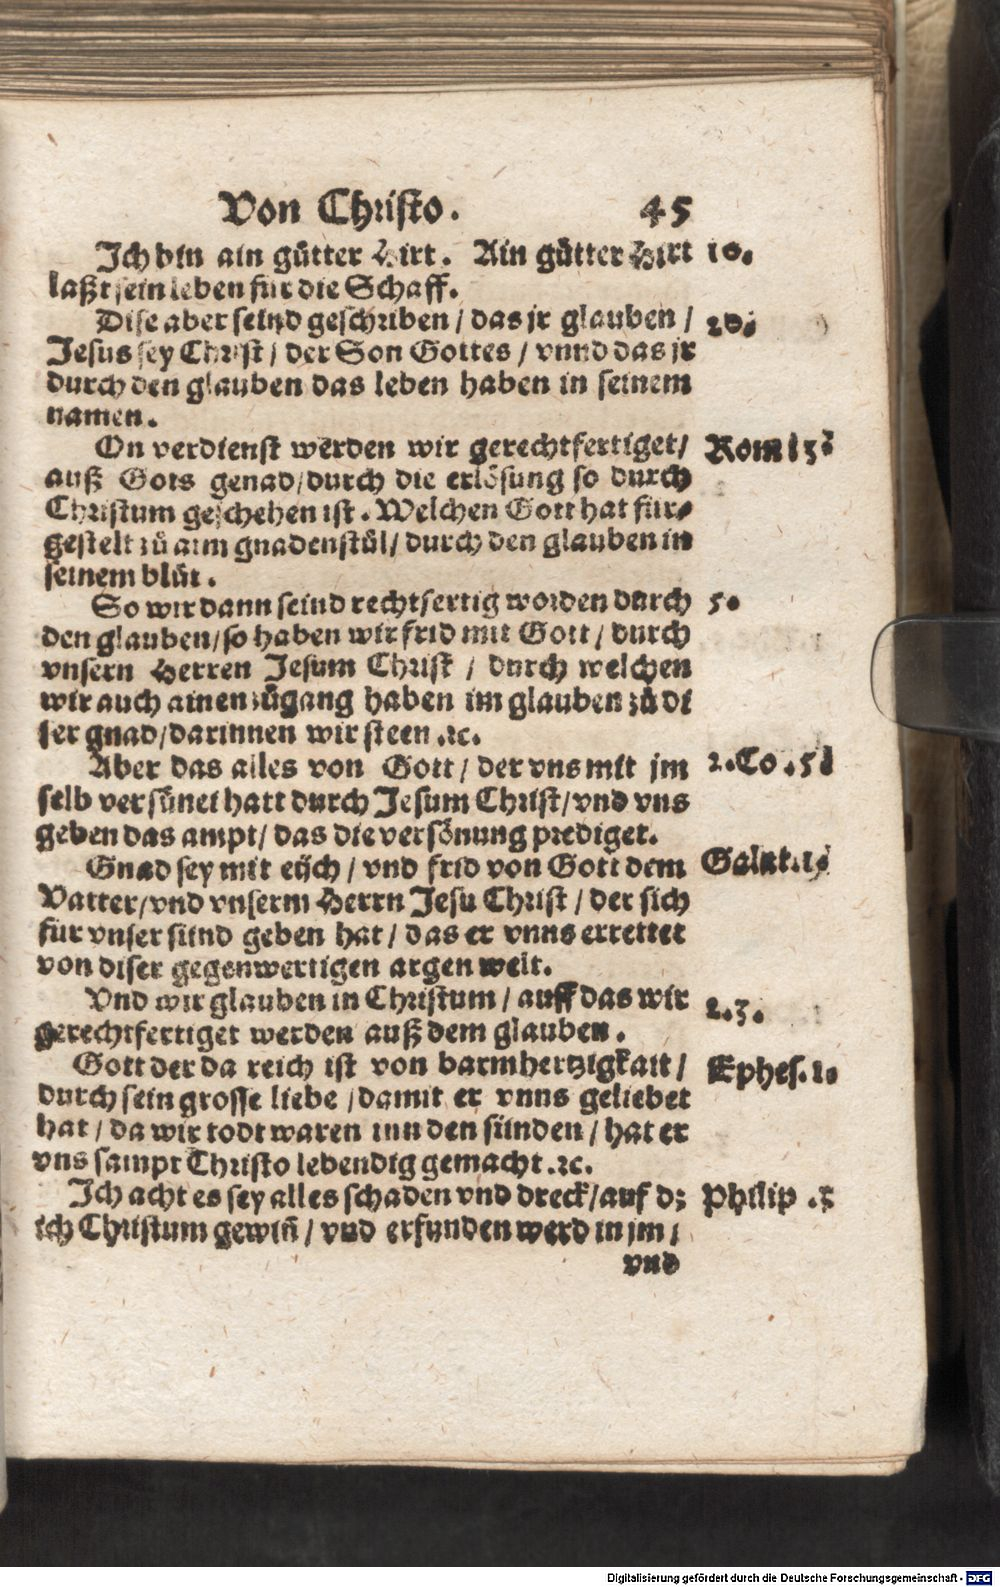 Von Christo. 45
Ich bin ain gůtter Hirt. Ain gůtter Hirt 10.
laßt sein leben für die Schaff.
Dise aber seind geschriben / das jr glauben / 20.
Jesus sey Christ / der Son Gottes / vnnd das jr
durch den glauben das leben haben in seinem
namen.
On verdienst werden wir gerechtfertiget / Rom 3.
auß Gots genad / durch die erlösung so durch
Christum geschehen ist. Welchen Gott hat für⸗
gestelt zů aim gnadenstůl / durch den glauben in
seinem blůt.
So wir dann seind rechtfertig worden durch 5.
den glauben / so haben wir frid mit Gott / durch
vnsern Herren Jesum Christ / durch welchen
wir auch ainen zůgang haben im glauben zů di
ser gnad / darinnen wir steen .ꝛc.
Aber das alles von Gott / der vns mit jm 2. Co. 5.
selb versünet hatt durch Jesum Christ / vnd vns
geben das ampt / das die versönung prediget.
Gnad sey mit eüch / vnd frid von Gott dem Galat. 1.
Vatter / vnd vnserm Herrn Jesu Christ / der sich
für vnser sünd geben hat / das er vnns errettet
von diser gegenwertigen argen welt.
Vnd wir glauben in Christum / auff das wir 2. 3.
gerechtfertiget werden auß dem glauben.
Gott der da reich ist von barmhertzigkait / Ephes. 2.
durch sein grosse liebe / damit er vnns geliebet
hat / da wir todt waren inn den sünden / hat er
vns sampt Christo lebendig gemacht .ꝛc.
Ich acht es sey alles schaden vnd dreck / auf dz Philip. 3
ich Christum gewiñ / vnd erfunden werd in jm /
vnd
Digitalisierung gefördert durch die Deutsche Forschungsgemeinschaft - DFG